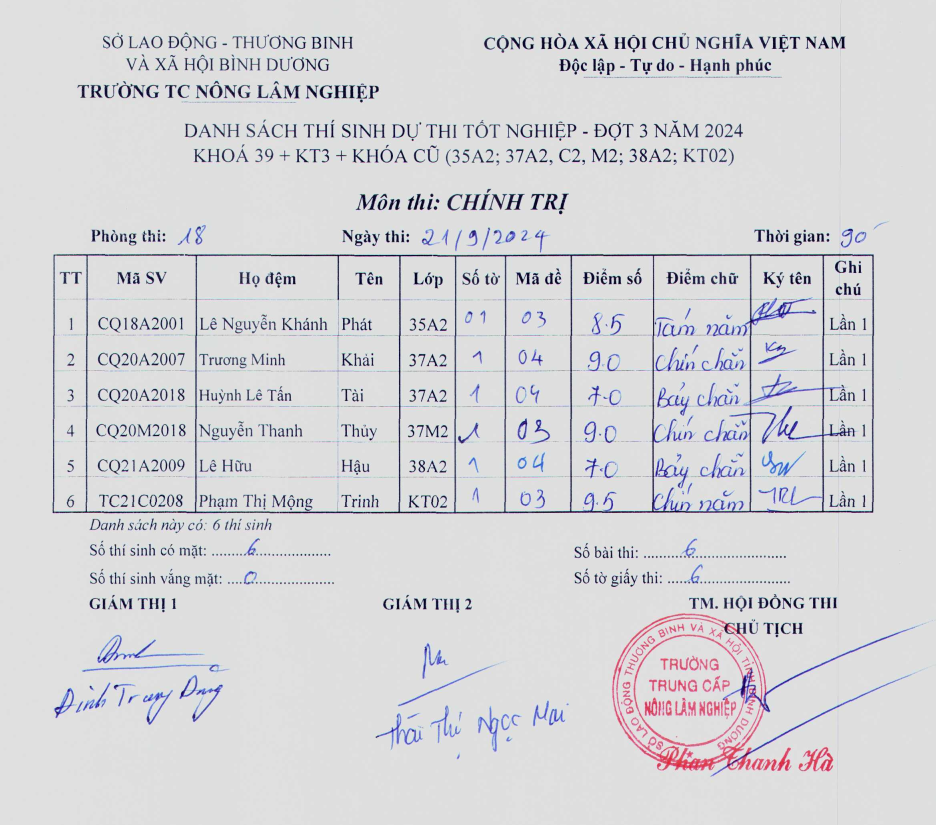 SỞ LAO ĐỘNG - THƯƠNG BINH
VÀ XÃ HỘI BÌNH DƯƠNG
TRƯỜNG TC NÔNG LÂM NGHIỆP
CỘNG HÒA XÃ HỘI CHỦ NGHĨA VIỆT NAM
Độc lập - Tự do - Hạnh phúc
DANH SÁCH THÍ SINH DỰ THI TỐT NGHIỆP - ĐỢT 3 NĂM 2024
KHOÁ 39 + KT3 + KHÓA CŨ (35A2; 37A2, C2, M2; 38A2; KT02)
Môn thi: CHÍNH TRỊ
Phòng thi: 18 Ngày thi: 21/9/2024 Thời gian: 90'
TT Mã SV Họ đệm Tên Lớp Số tờ Mã đề Điểm số Điểm chữ Ký tên Ghi chú
1 CQ18A2001 Lê Nguyễn Khánh Phát 35A2 01 03 8.5 Tám năm Lần 1
2 CQ20A2007 Trương Minh Khải 37A2 1 04 9.0 Chín chẵn Lần 1
3 CQ20A2018 Huỳnh Lê Tấn Tài 37A2 1 04 7.0 Bảy chẵn Lần 1
4 CQ20M2018 Nguyễn Thanh Thủy 37M2 1 03 9.0 Chín chẵn Lần 1
5 CQ21A2009 Lê Hữu Hậu 38A2 1 04 7.0 Bảy chẵn Lần 1
6 TC21C0208 Phạm Thị Mộng Trinh KT02 1 03 9.5 Chín năm Lần 1
Danh sách này có: 6 thí sinh
Số thí sinh có mặt: ........6..................
Số thí sinh vắng mặt: ....0....................
Số bài thi: ..........6......................
Số tờ giấy thi: ......6......................
GIÁM THỊ 1
GIÁM THỊ 2
TM. HỘI ĐỒNG THI
CHỦ TỊCH
Đinh Trung Dũng
Thái Thị Ngọc Mai
SỞ LAO ĐỘNG THƯƠNG BINH VÀ XÃ HỘI TỈNH BÌNH DƯƠNG
TRƯỜNG
TRUNG CẤP
NÔNG LÂM NGHIỆP
Phan Thanh Hà